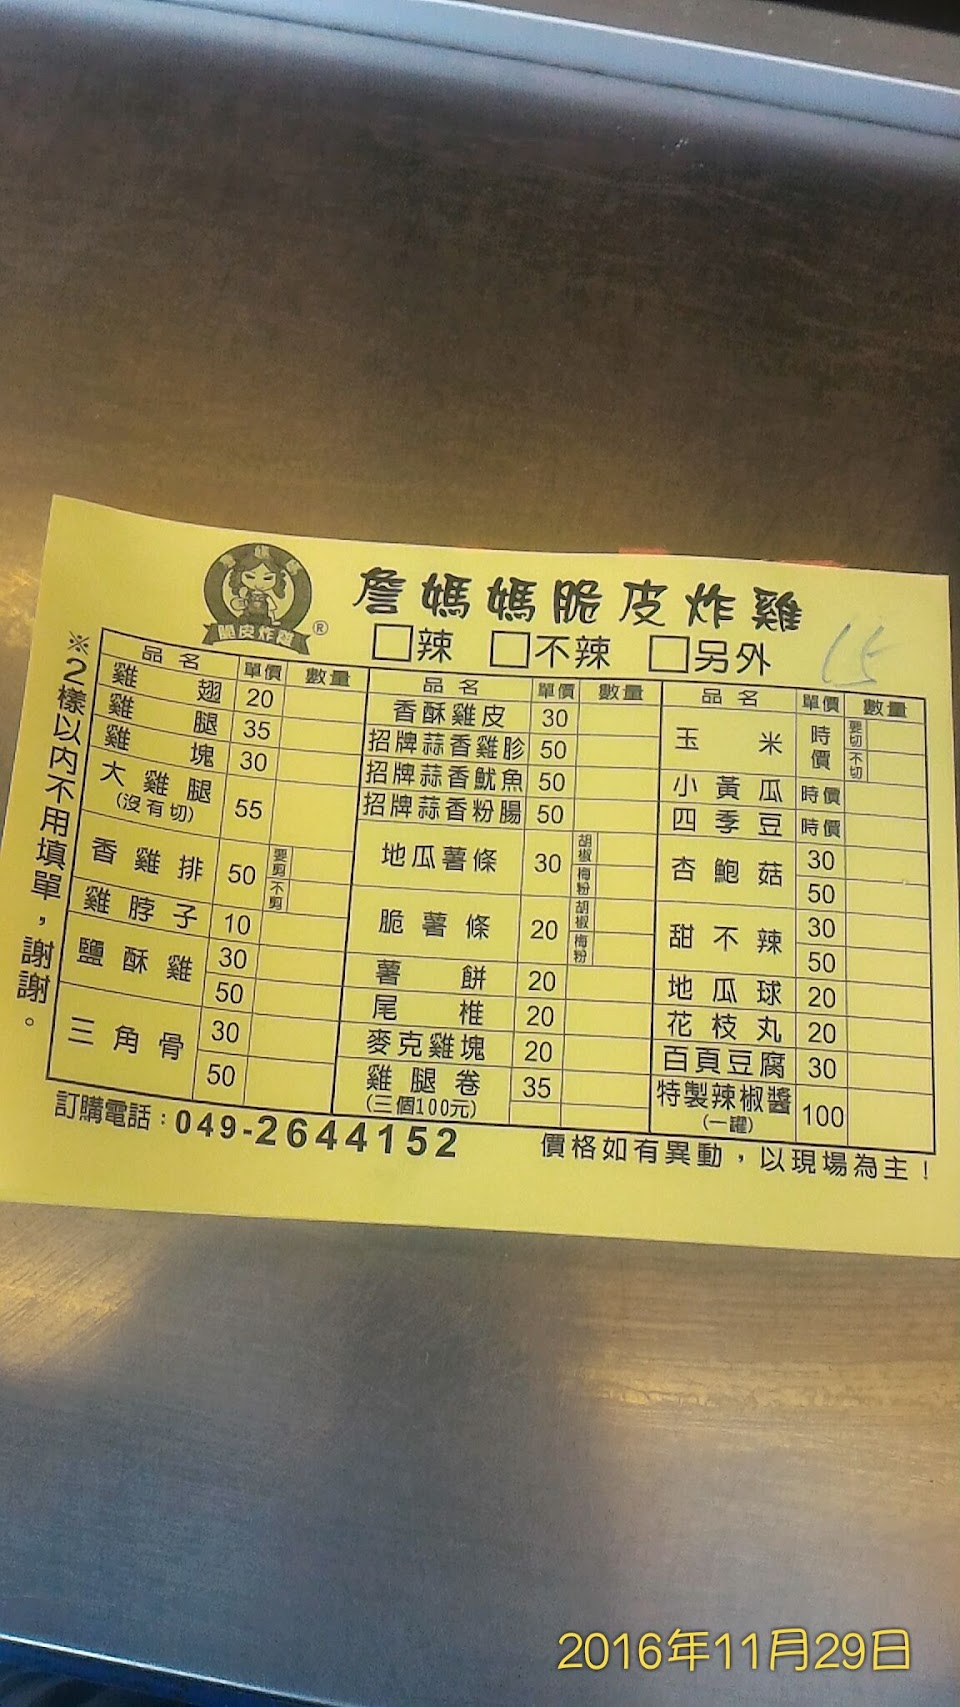 詹媽媽脆皮炸雞
脆皮炸雞 ®
□辣 □不辣 □另外
15
※2樣以內不用填單，謝謝。
品名 單價 數量
雞翅 20
雞腿 35
雞塊 30
大雞腿 55
(沒有切)
香雞排 50 要剪 不剪
雞脖子 10
鹽酥雞 30
50
三角骨 30
50
品名 單價 數量
香酥雞皮 30
招牌蒜香雞胗 50
招牌蒜香魷魚 50
招牌蒜香粉腸 50
地瓜薯條 30 胡椒 梅粉
脆薯條 20 胡椒 梅粉
薯餅 20
尾椎 20
麥克雞塊 20
雞腿卷 35
(三個100元)
品名 單價 數量
玉米 時價 要切 不切
小黃瓜 時價
四季豆 時價
杏鮑菇 30
50
甜不辣 30
50
地瓜球 20
花枝丸 20
百頁豆腐 30
特製辣椒醬 100
(一罐)
訂購電話：049-2644152
價格如有異動，以現場為主！
2016年11月29日